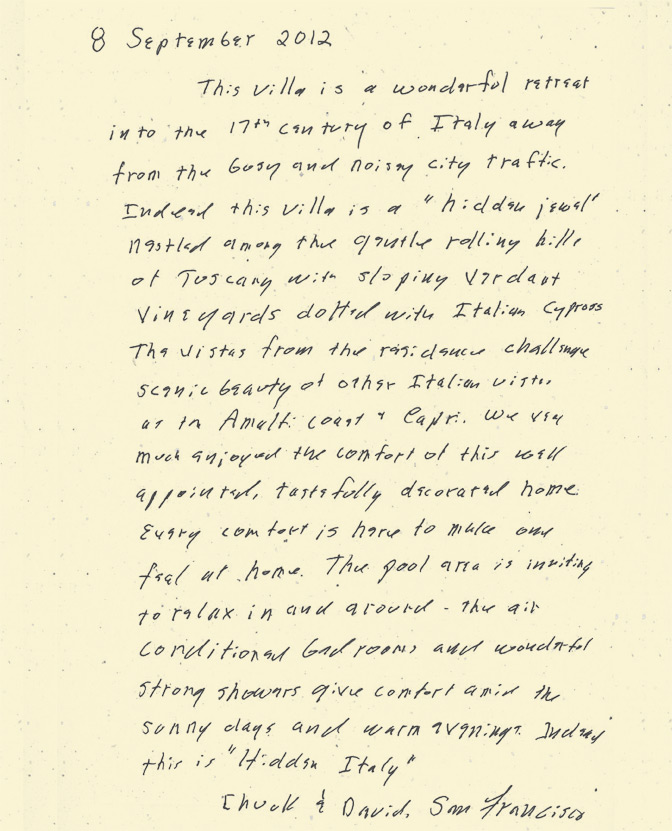 8 September 2012
This villa is a wonderful retreat
into the 17th century of Italy away
from the busy and noisy city traffic.
Indeed this villa is a "hidden jewel"
nestled among the gentle rolling hills
of Tuscany with sloping verdant
vineyards dotted with Italian Cypress
The vistas from the residence challenge
scenic beauty of other Italian vistas
as the Amalfi coast & Capri. We very
much enjoyed the comfort of this well
appointed, tastefully decorated home.
Every comfort is here to make one
feel at home. The pool area is inviting
to relax in and around - the air
conditioned bedrooms and wonderful
strong showers give comfort amid the
sunny days and warm evenings. Indeed
this is "Hidden Italy"
Chuck & David, San Francisco